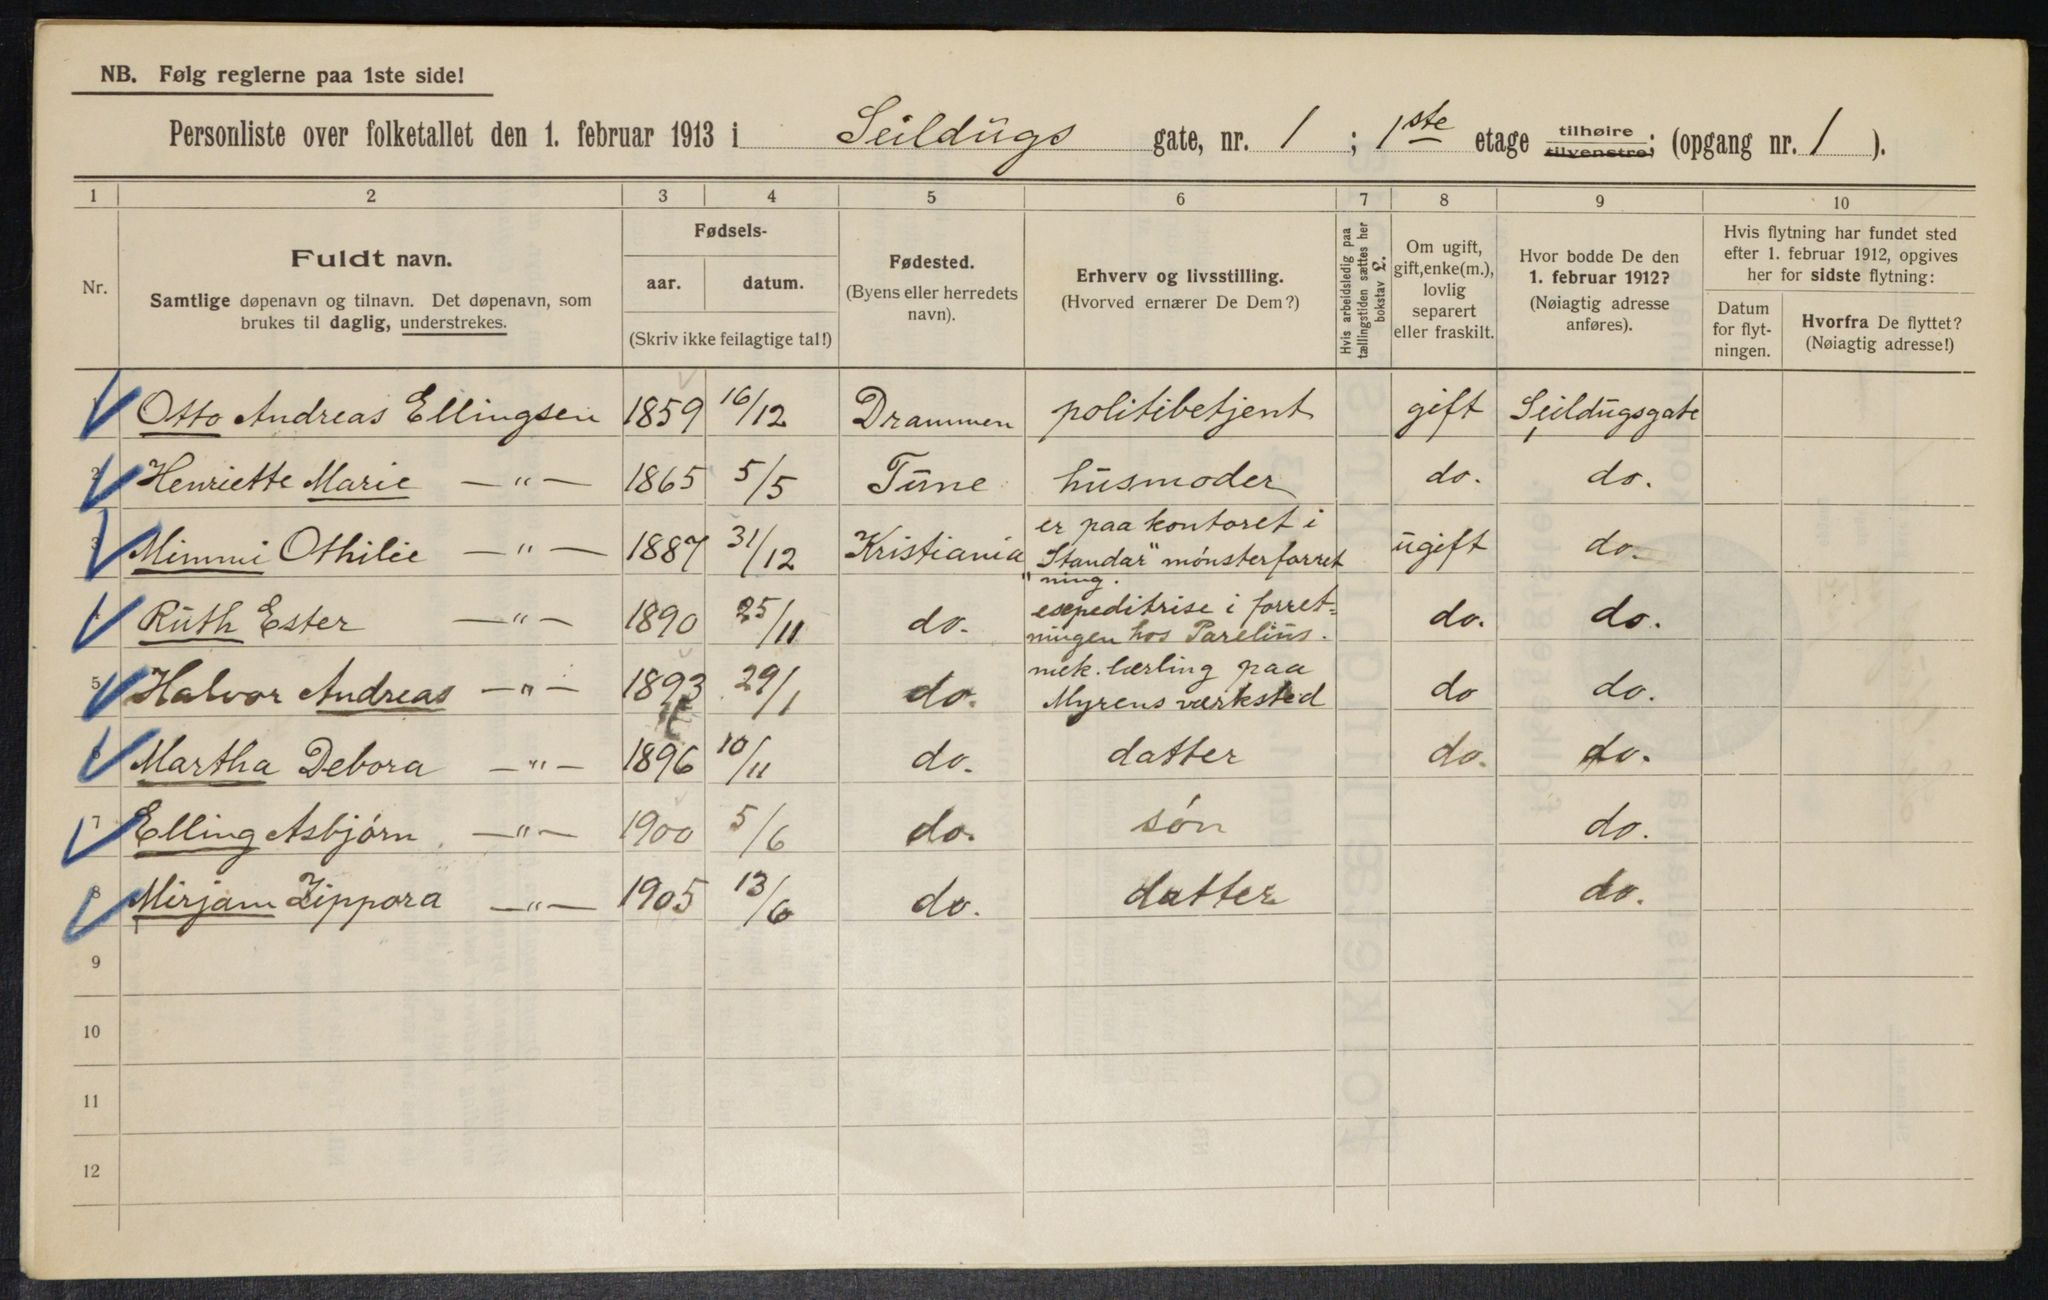 NB. Følg reglerne paa 1ste side!
Personliste over folketallet den 1. februar 1913 i Seildugs gate, nr. 1 ; 1ste etage tilhøire tilvenstre; (opgang nr. 1 ).
1 2 3 4 5 6 7 8 9 10
Nr.
Fuldt navn.
Samtlige døpenavn og tilnavn. Det døpenavn, som
brukes til daglig, understrekes.
Fødsels-
aar. datum.
(Skriv ikke feilagtige tal!)
Fødested.
(Byens eller herredets
navn).
Erhverv og livsstilling.
(Hvorved ernærer De Dem?)
Hvis arbeidsledig paa
tællingstiden sættes her
bokstav £.
Om ugift,
gift, enke(m.),
lovlig
separert
eller fraskilt.
Hvor bodde De den
1. februar 1912?
(Nøiagtig adresse
anføres).
Hvis flytning har fundet sted
efter 1. februar 1912, opgives
her for sidste flytning:
Datum
for flyt-
ningen.
Hvorfra De flyttet?
(Nøiagtig adresse!)
1 Otto Andreas Ellingsen 1859 16/12 Drammen politibetjent gift Seildugsgate 1
2 Henriette Marie —"— 1865 5/5 Tune husmoder do. do.
3 Mimmi Othilie —"— 1887 31/12 Kristiania er paa kontoret i
"Standar" mønsterforret
ning. ugift do.
4 Ruth Ester —"— 1890 25/11 do. expeditrise i forret=
ningen hos Parelius. do. do.
5 Halvor Andreas —"— 1893 29/1 do. mek. lærling paa
Myrens værksted do do.
6 Martha Debora —"— 1896 10/11 do. datter do. do.
7 Elling Asbjørn —"— 1900 5/6 do. søn do.
8 Mirjam Zippora —"— 1905 13/6 do. datter do.
9
10
11
12